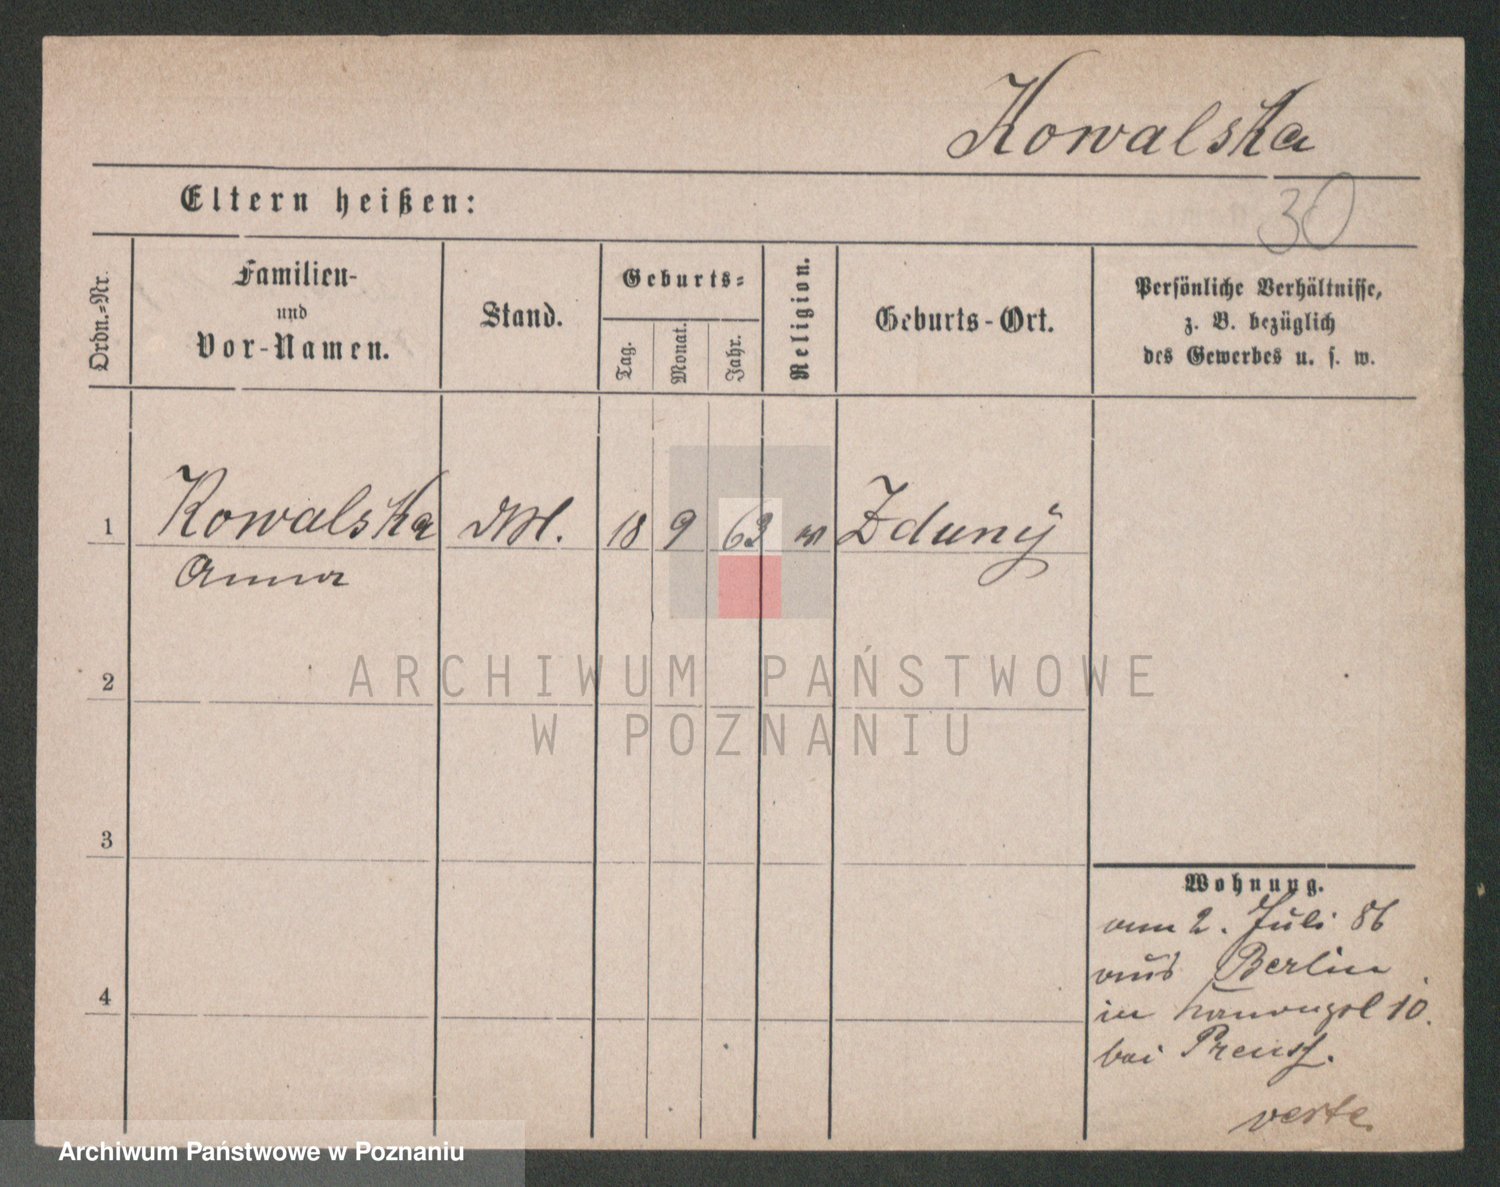 Kowalska
30
Eltern heißen:
Ordn.-Nr.
Familien-
und
Vor-Namen.
Stand.
Geburts-
Tag.
Monat.
Jahr.
Religion.
Geburts-Ort.
Persönliche Verhältnisse,
z. B. bezüglich
des Gewerbes u. s. w.
1 Kowalska 18 9 63 Zduny
Anna
2
3
4
Wohnung.
am 2. Juli 86
aus Berlin
in 10.
bei Preuss.
verte
ARCHIWUM PAŃSTWOWE
W POZNANIU
Archiwum Państwowe w Poznaniu